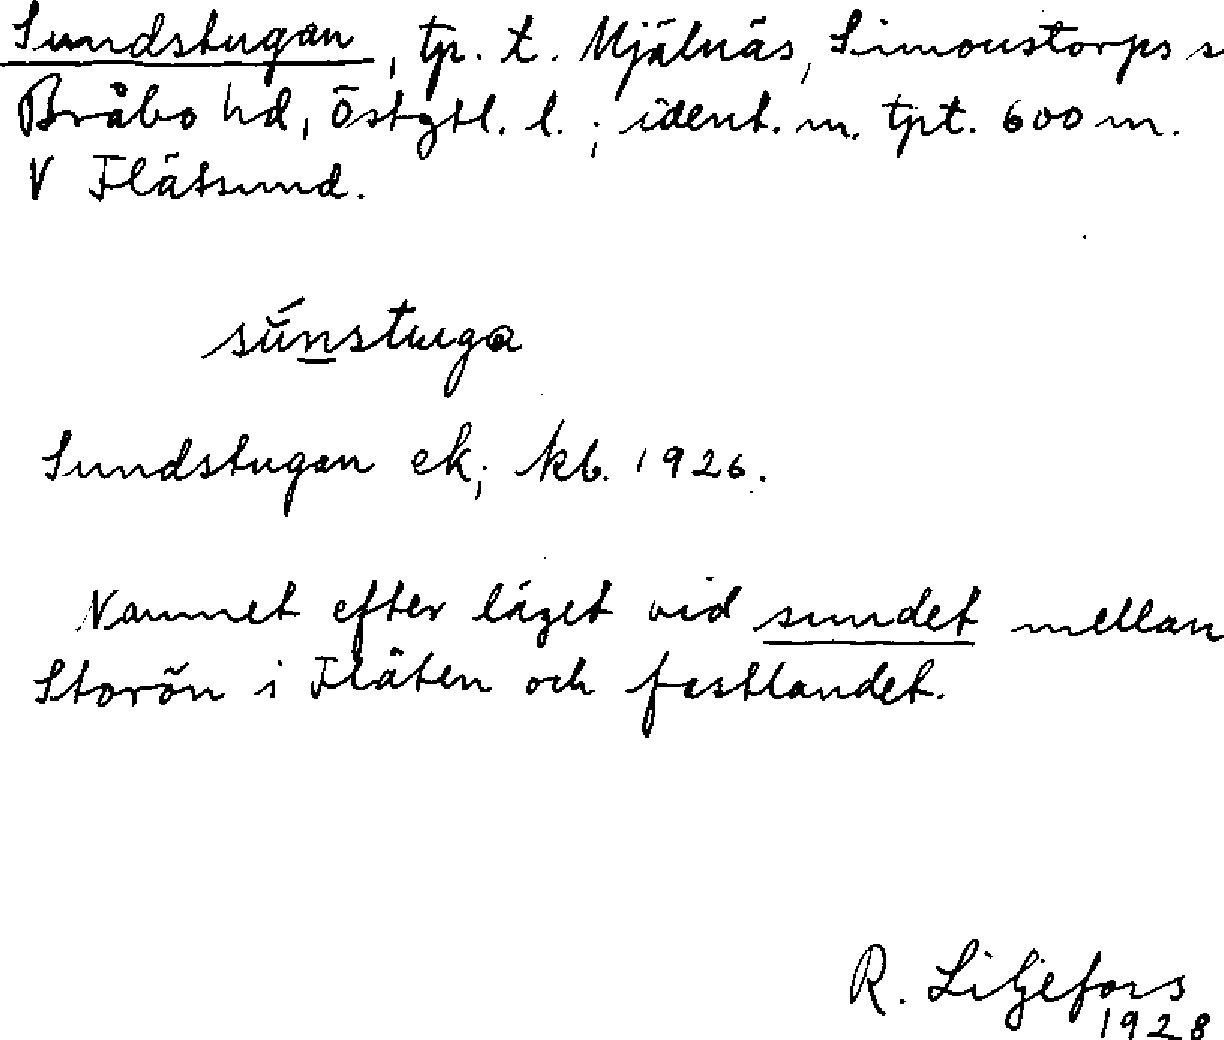 Sundstugan, tp. t. Mjälnäs, Simonstorps s
Bråbo hd, Östgtl. l.; ident. m. tpt. 600 m.
V Flätsund.
súnstuga
Sundstugan ek; kb. 1926.
Namnet efter läget vid sundet mellan
Storön i Fläten och fastlandet.
R. Liljefors
1928